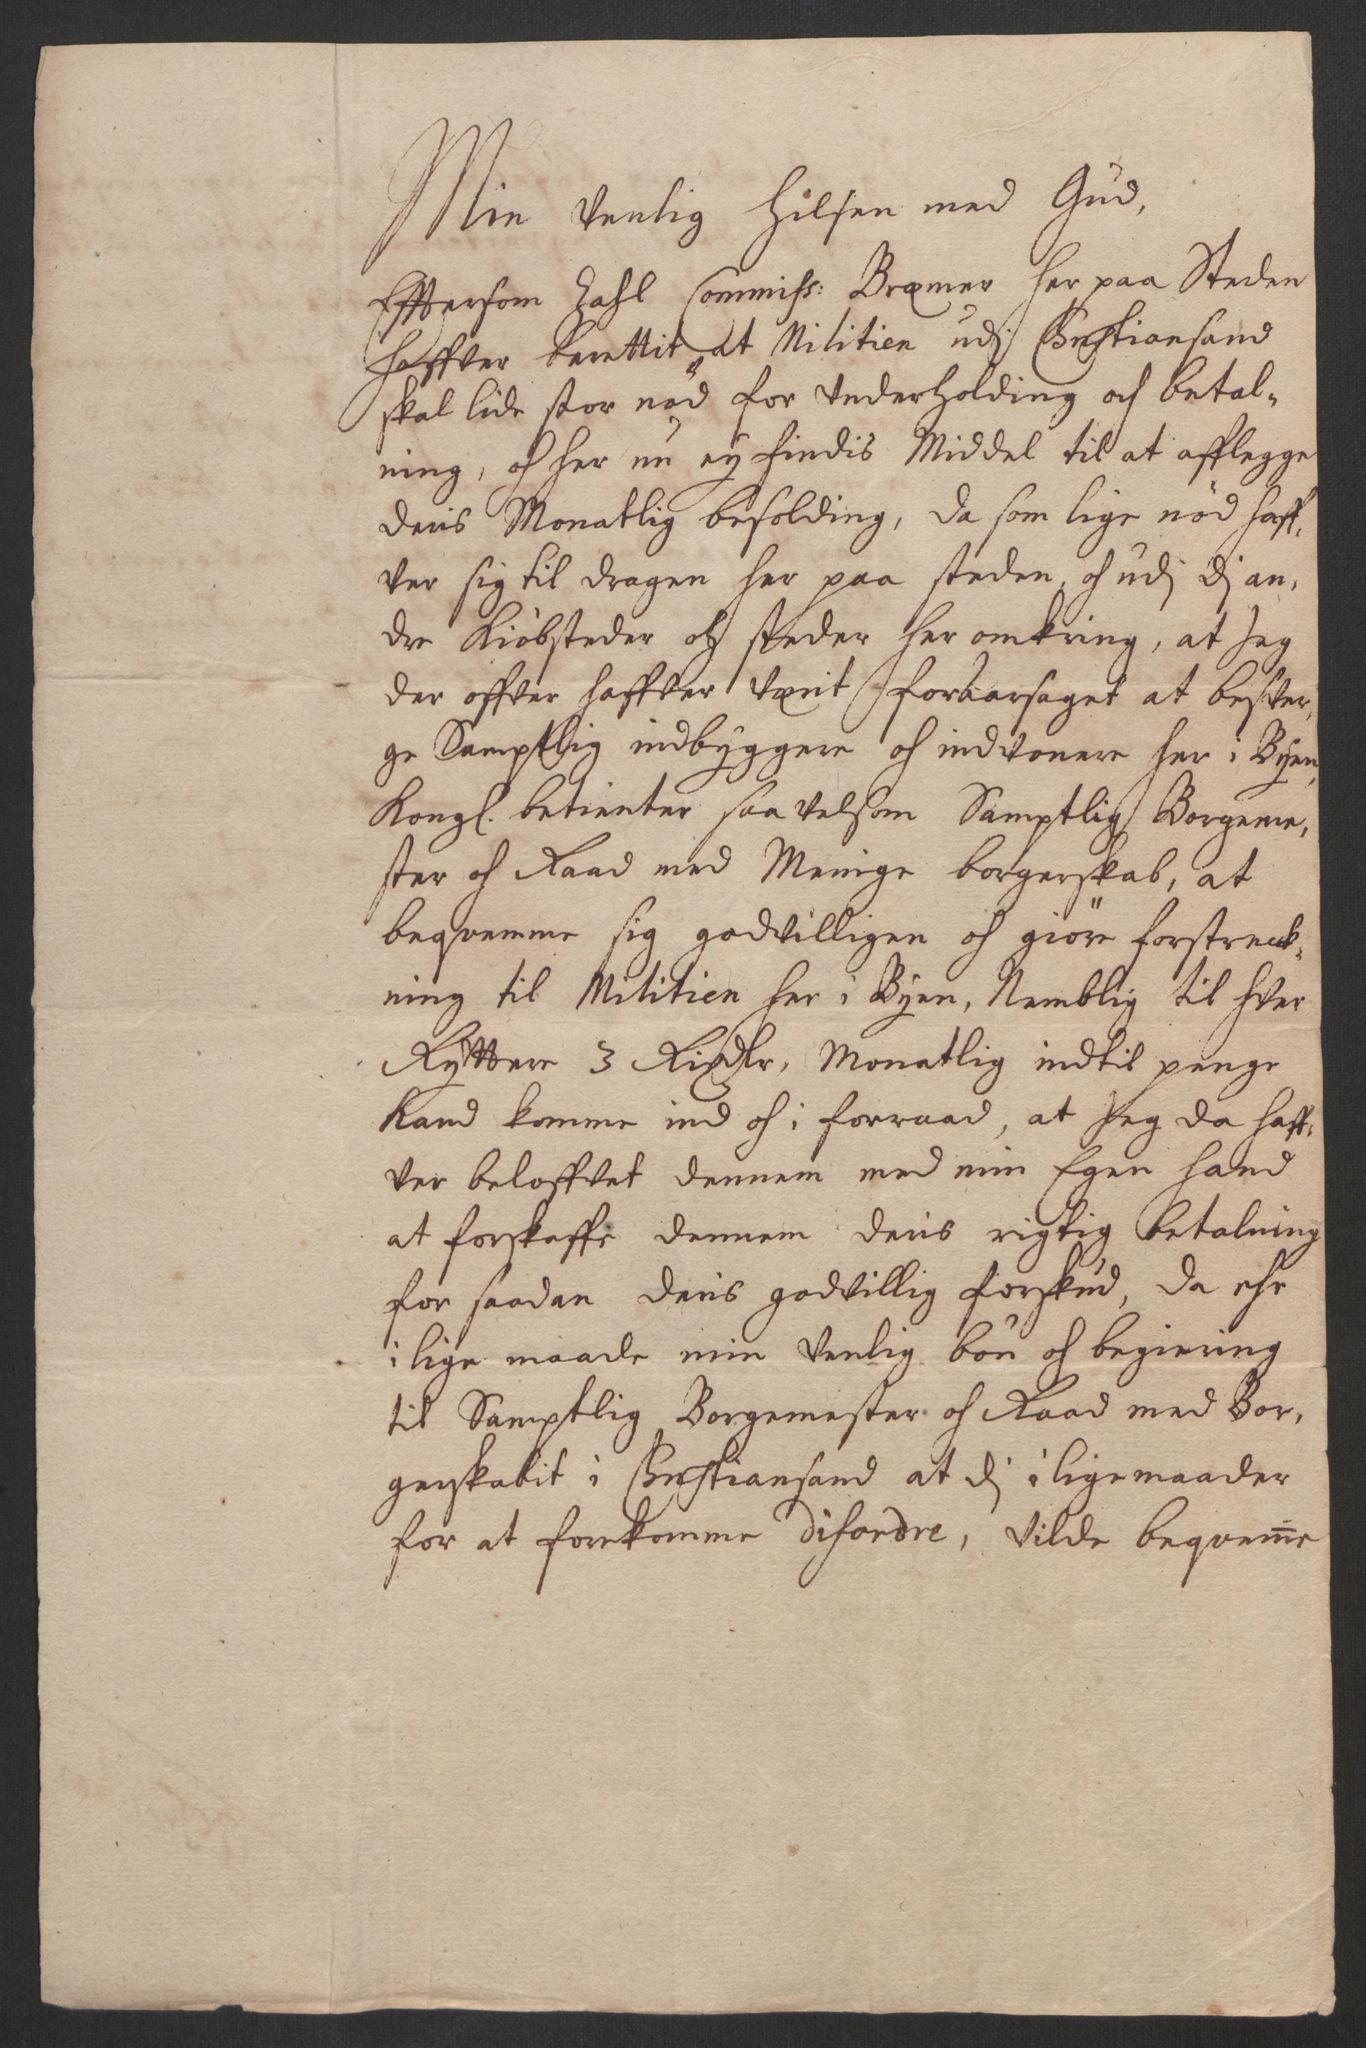 Min Venlig Hilsen med Gud,
Efftersom Zahl Commiss: Bremer her paa Steden
haffver berettit at Militien udj Christiansand
skal lide stor nød for Underholding och betal-
ning, och her nu ey findis Middel til at afflegge
deris Monatlig besolding, da som lige nöd haff-
ver sig til dragen her paa steden, och udj dj an-
dre Kiöbsteder och steder her omkring, at Jeg
der offver haffver verit foraarsaget at besver-
ge Samptlig indbyggere och indvonere her i Byen,
Kongl. betienter saa velsom Samptlig Borgeme-
ster och Raad med Menige borgerskab, at
beqvemme sig godvilligen och giöre forstreck-
ning til Militien her i Byen, Nemblig til hver
Ryttere 3 Rixdlr. Monatlig indtil penge
kand komme ind och i forraad, at Jeg da haff-
ver beloffvet dennem med min Egen hand
at forskaffe dennem deris rigtig betalning
for saadan deris godvillig forskud, da ehr
i lige maade min Venlig bön och begiering
til Samptlig Borgemester och Raad med Bor-
gerskabit i Christiansand at dj i ligemaader
for at forekomme disordre, vilde beqvem̄e